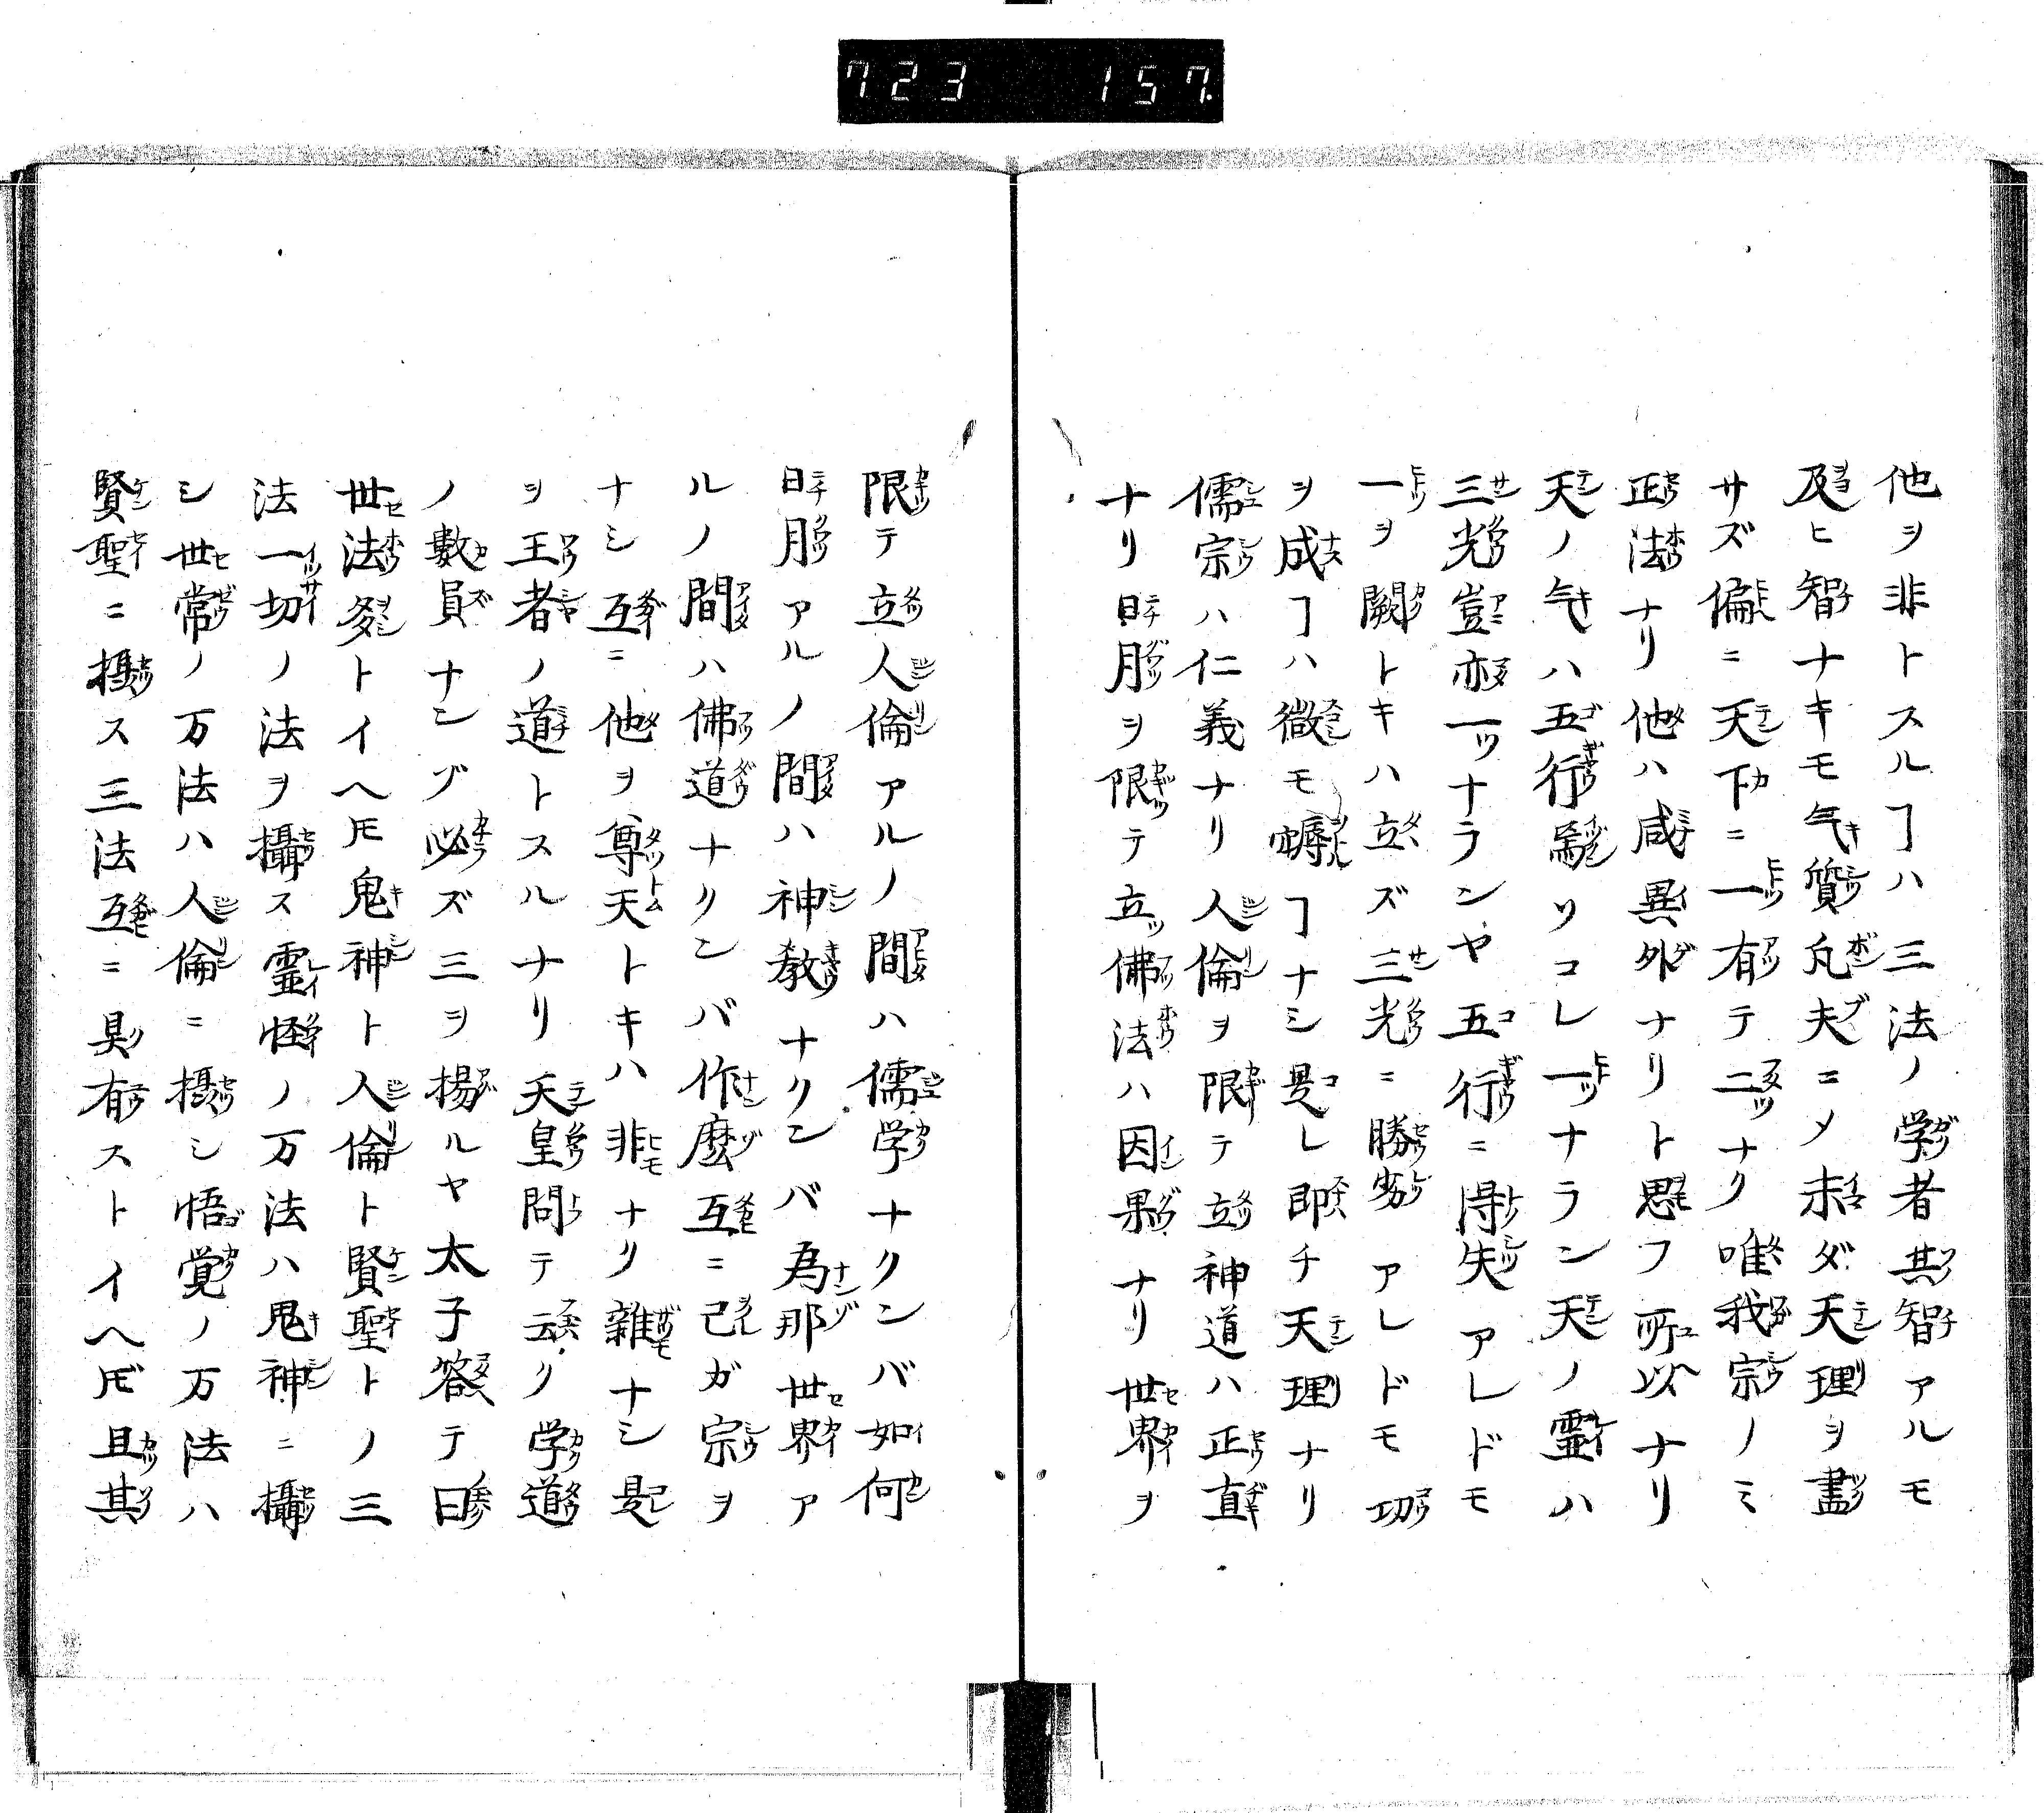 723 157
他ヲ非トスルヿハ三法ノ学者其智アルモ
及ヒ智ナキモ气質凡夫ニメ未ダ天理ヲ盡
サズ偏ニ天下ニ一有テ二ッナク唯我宗ノミ
正法ナリ他ハ咸異外ナリト思フ所以ナリ
天ノ气ハ五行ソコレ一ッナラン天ノ霊ハ
三光豈亦一ッナランヤ五行ニ得失アレドモ
一ヲ闕トキハ立ズ三光ニ勝劣アレドモ功
ヲ成ヿハ微モヿナシ是レ即チ天理ナリ
儒宗ハ仁義ナリ人倫ヲ限テ立神道ハ正直
ナリ日月ヲ限テ立ッ佛法ハ因果ナリ世界ヲ
限テ立人倫アルノ間ハ儒学ナクンバ如何
日月アルノ間ハ神教ナクンバ為那世界ア
ルノ間ハ佛道ナクンバ作麽互ニ己ガ宗ヲ
ナシ互ニ他ヲ尊天トキハ非ナク雑ナシ是
ヲ王者ノ道トスルナリ天皇問テ云ク学道
ノ數員ナンゾ必ズ三ヲ揚ルヤ太子答テ曰
世法多トイヘ𪜈鬼神ト人倫ト賢聖トノ三
法一切ノ法ヲ攝ス霊怪ノ万法ハ鬼神ニ攝
シ世常ノ万法ハ人倫ニ攝シ悟覚ノ万法ハ
賢聖ニ攝ス三法互ニ具有ストイヘ𪜈且其